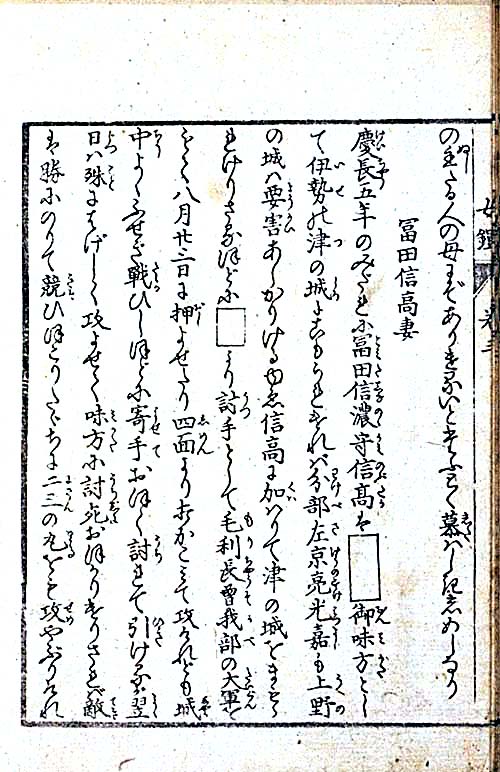 の主たる人の母まで慕はしき
冨田信高妻
慶長五年のみだれに冨田信濃守信高は御味方とし
て伊勢の津の城にこもられければ分部左京亮光嘉も上野
の城は要害あしかりけるゆゑ信高に加はりて津の城をまもら
れけりさるほどにより討手として毛利長曽我部の大軍を
もて八月廿三日に押よせたり四面よりかこみて攻けれども城
中よくふせぎ戦ひしほどに寄手おほく討れて引けるが翌
日は殊にはげしく攻よせて味方に討死おほかりけりされば敵
は勝にのりて競ひほこりたちまちに二三の丸をも攻やぶりけれ